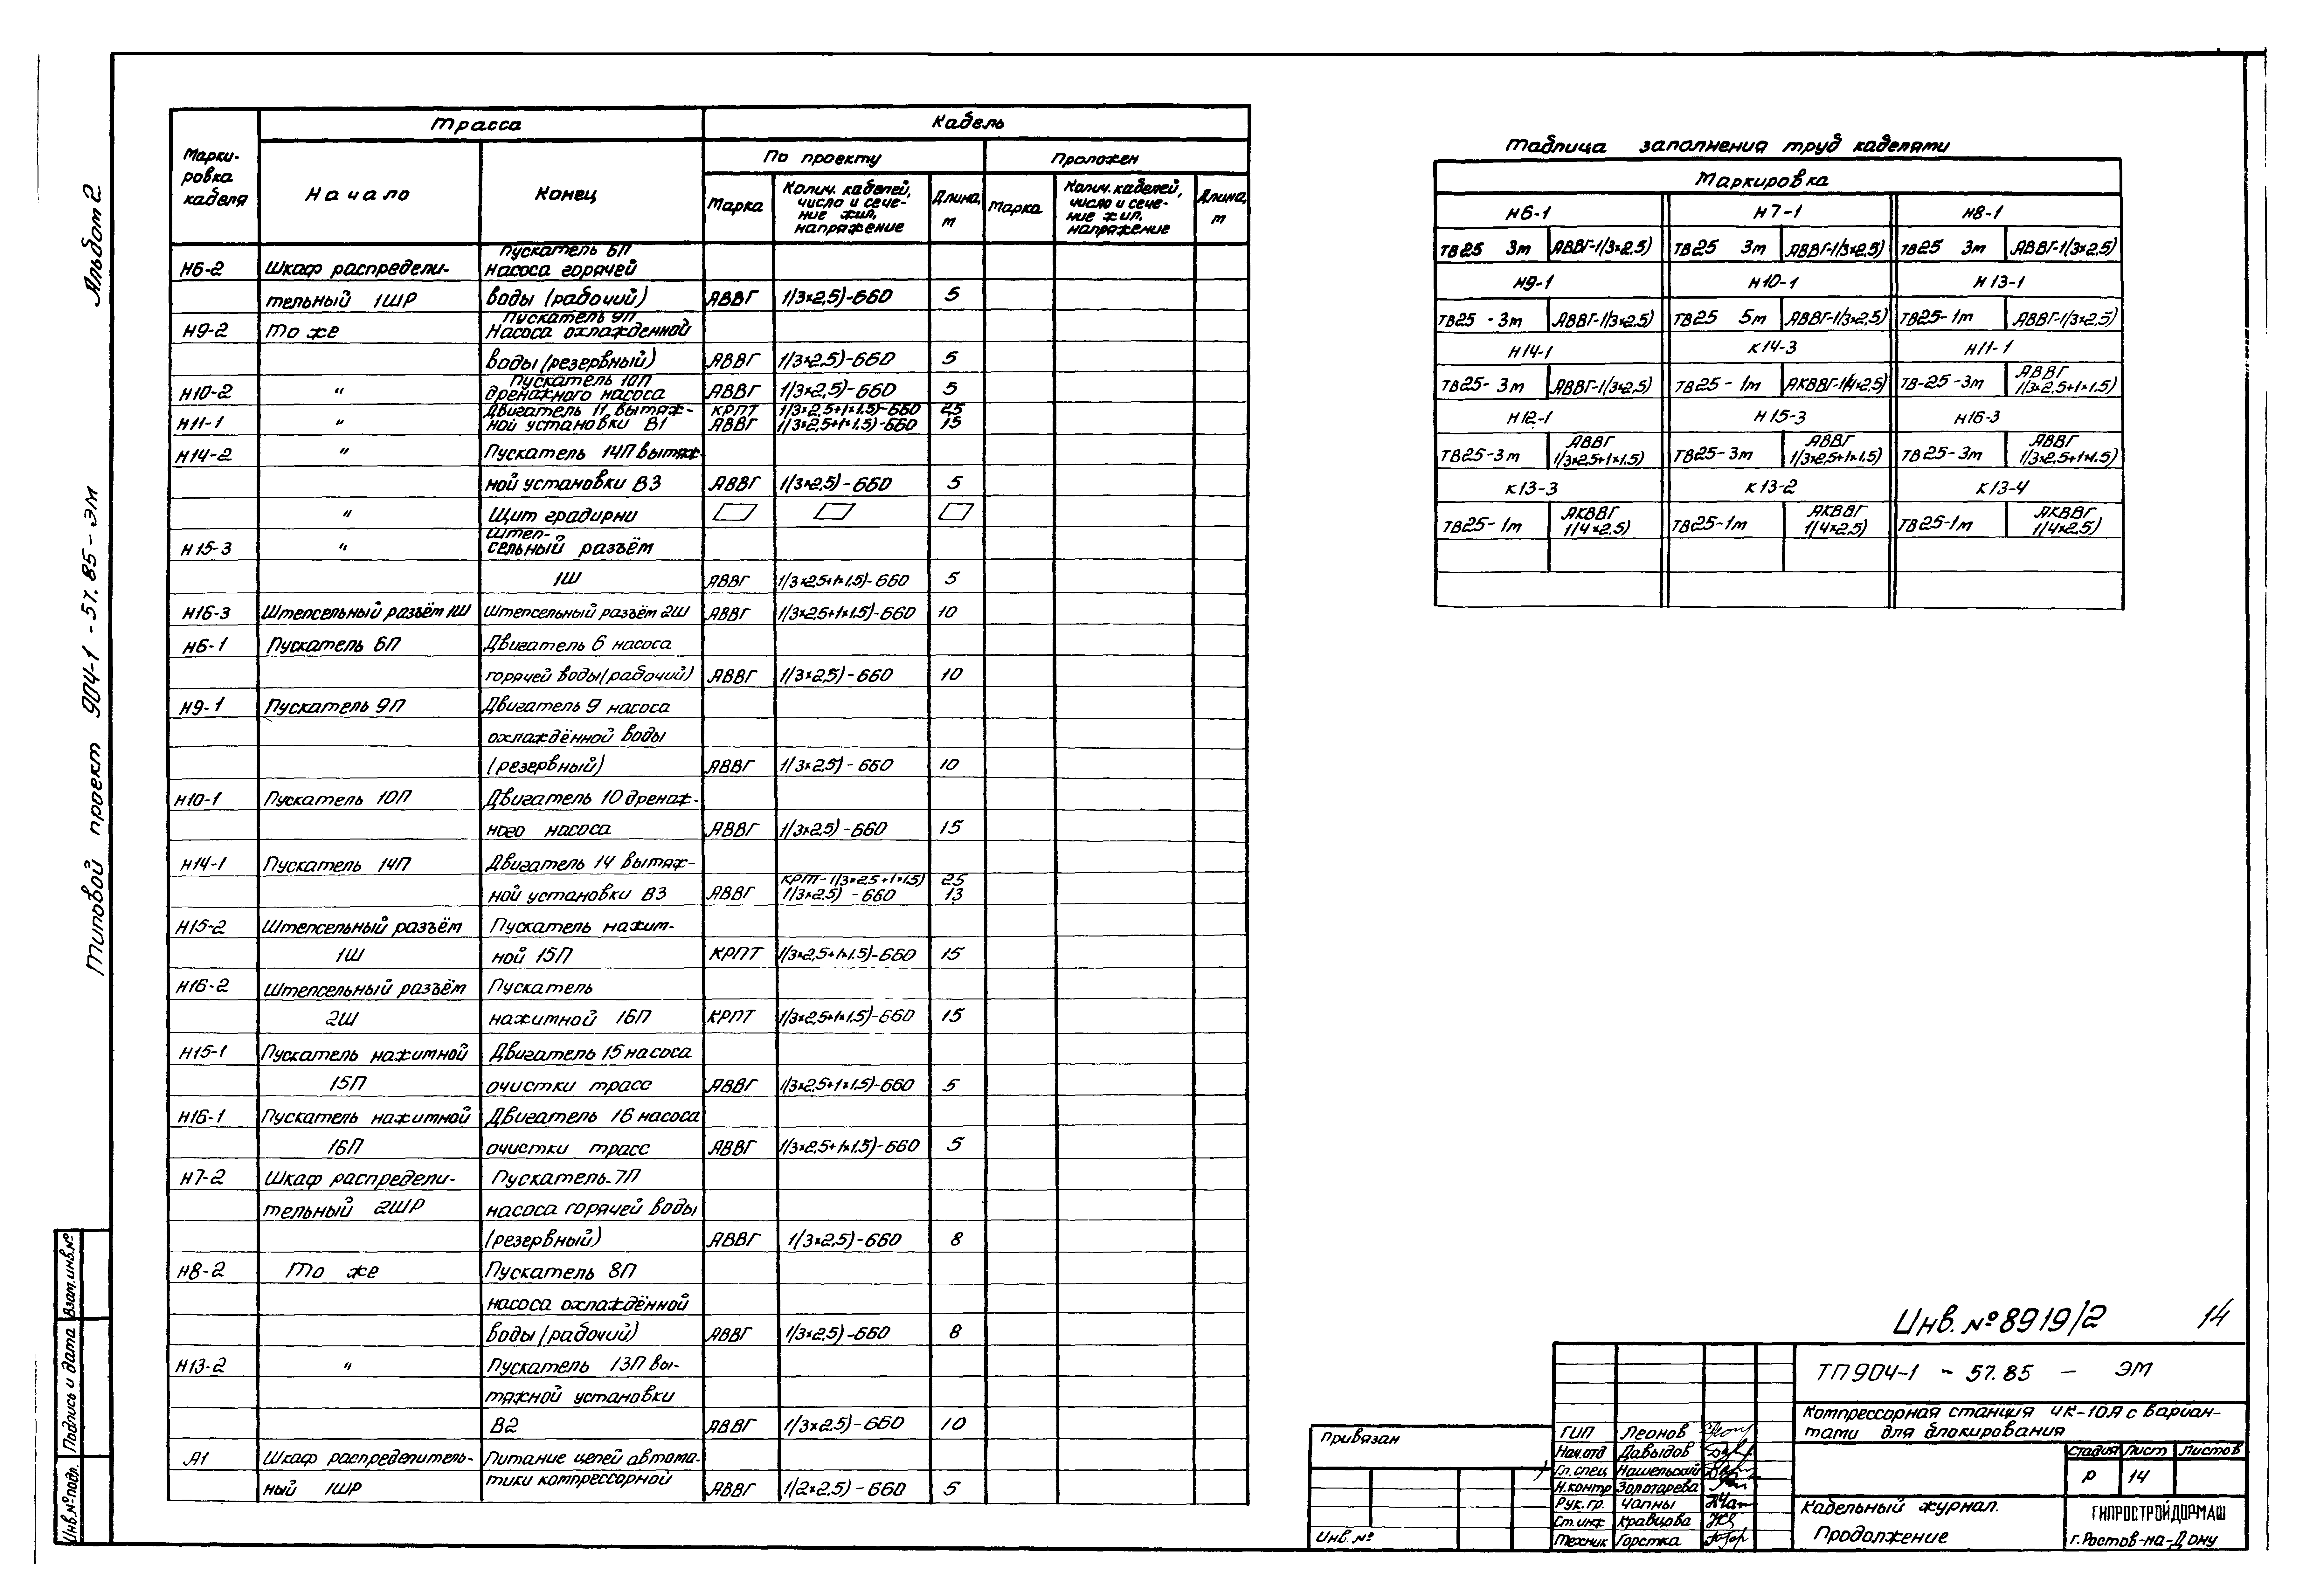 Альбом 2
Типовой проект 904-1-57.85-ЭМ
Марки-
ровка
кабеля
Трасса
Кабель
Начало
Конец
По проекту
Проложен
Марка
Колич. кабелей,
число и сече-
ние жил,
напряжение
Длина,
м
Марка
Колич. кабелей,
число и сече-
ние жил,
напряжение
Длина,
м
Пускатель 6П
Н6-2 Шкаф распредели- насоса горячей
тельный 1ШР воды (рабочий) АВВГ 1(3×2,5)-660 5
Пускатель 9П
Н9-2 То же насоса охлажденной
воды (резервный) АВВГ 1(3×2,5)-660 5
Пускатель 10П
Н10-2 " дренажного насоса АВВГ 1(3×2,5)-660 5
Двигатель 11, вытяж- КРПТ 1(3×2,5+1×1,5)-660 25
Н11-1 " ной установки В1 АВВГ 1(3×2,5+1×1,5)-660 15
Н14-2 " Пускатель 14П вытяж-
ной установки В3 АВВГ 1(3×2,5)-660 5
" Щит градирни
Штеп-
Н15-3 " сельный разъём
1Ш АВВГ 1(3×2,5+1×1,5)-660 5
Н16-3 Штепсельный разъём 1Ш Штепсельный разъём 2Ш АВВГ 1(3×2,5+1×1,5)-660 10
Н6-1 Пускатель 6П Двигатель 6 насоса
горячей воды (рабочий) АВВГ 1(3×2,5)-660 10
Н9-1 Пускатель 9П Двигатель 9 насоса
охлаждённой воды
(резервный) АВВГ 1(3×2,5)-660 10
Н10-1 Пускатель 10П Двигатель 10 дренаж-
ного насоса АВВГ 1(3×2,5)-660 15
Н14-1 Пускатель 14П Двигатель 14 вытяж-
КРПТ-1(3×2,5+1×1,5) 25
ной установки В3 АВВГ 1(3×2,5)-660 13
Н15-2 Штепсельный разъём Пускатель нажим-
1Ш ной 15П КРПТ 1(3×2,5+1×1,5)-660 15
Н16-2 Штепсельный разъём Пускатель
2Ш нажимной 16П КРПТ 1(3×2,5+1×1,5)-660 15
Н15-1 Пускатель нажимной Двигатель 15 насоса
15П очистки трасс АВВГ 1(3×2,5+1×1,5)-660 5
Н16-1 Пускатель нажимной Двигатель 16 насоса
16П очистки трасс АВВГ 1(3×2,5+1×1,5)-660 5
Н7-2 Шкаф распредели- Пускатель 7П
тельный 2ШР насоса горячей воды
(резервный) АВВГ 1(3×2,5)-660 8
Н8-2 То же Пускатель 8П
насоса охлаждённой
воды (рабочий) АВВГ 1(3×2,5)-660 8
Н13-2 " Пускатель 13П вы-
тяжной установки
В2 АВВГ 1(3×2,5)-660 10
А1 Шкаф распределитель- Питание цепей автома-
тики компрессорной
ный 1ШР АВВГ 1(2×2,5)-660 5
Таблица заполнения труб кабелями
Маркировка
Н6-1 Н7-1 Н8-1
ТВ25 3м АВВГ-1(3×2,5) ТВ25 3м АВВГ-1(3×2,5) ТВ25 3м АВВГ-1(3×2,5)
Н9-1 Н10-1 Н13-1
ТВ25-3м АВВГ-1(3×2,5) ТВ25 5м АВВГ-1(3×2,5) ТВ25-1м АВВГ-1(3×2,5)
Н14-1 К14-3 Н11-1
ТВ25-3м АВВГ-1(3×2,5) ТВ25-1м АКВВГ-1(4×2,5) ТВ-25-3м АВВГ
1(3×2,5+1×1,5)
Н12-1 Н15-3 Н16-3
ТВ25-3м АВВГ
1(3×2,5+1×1,5) ТВ25-3м АВВГ
1(3×2,5+1×1,5) ТВ25-3м АВВГ
1(3×2,5+1×1,5)
К13-3 К13-2 К13-4
ТВ25-1м АКВВГ
1(4×2,5) ТВ25-1м АКВВГ
1(4×2,5) ТВ25-1м АКВВГ
1(4×2,5)
Инв. № 8919/2 14
ТП 904-1 - 57.85 - ЭМ
Компрессорная станция 4К-10А с вариан-
тами для блокирования
Стадия Лист Листов
Р 14
Кабельный журнал.
Продолжение
ГИПРОСТРОЙДОРМАШ
г. Ростов-на-Дону
ГИП Леонов
Нач.отд Давыдов
Гл.спец Нашельский
Н.контр Золотарева
Рук.гр. Чапны
Ст.инж Кравцова
Техник Горстка
Привязан
Инв. №
Взам.инв.№
Подпись и дата
Инв.№ подл.